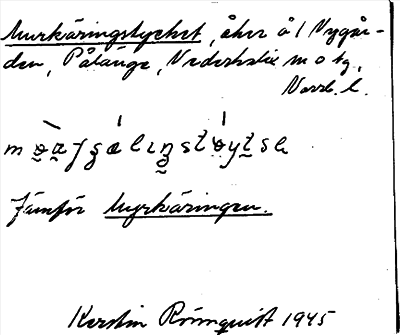 Myrkäringstycket, åker å / Nygår-
den, Pålänge, Nederkalix m o tg,
Norrb. l.
Jämför Myrkäringen.
Kerstin Rönnquist 1945